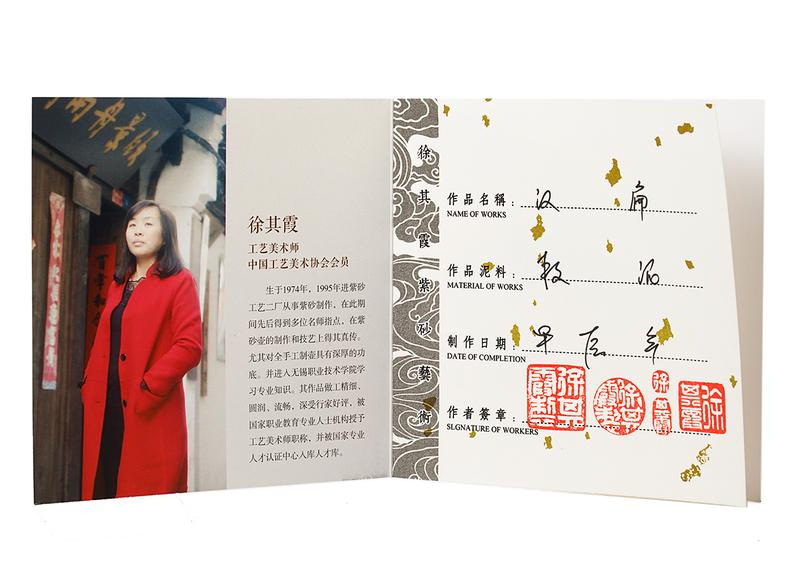 徐其霞
工艺美术师
中国工艺美术协会会员
生于1974年，1995年进紫砂
工艺二厂从事紫砂制作，在此期
间先后得到多位名师指点，在紫
砂壶的制作和技艺上得其真传。
尤其对全手工制壶具有深厚的功
底。并进入无锡职业技术学院学
习专业知识。其作品做工精细、
圆润、流畅，深受行家好评，被
国家职业教育专业人士机构授予
工艺美术师职称，并被国家专业
人才认证中心入库人才库。
徐其霞紫砂藝術
作品名稱：汉扁
NAME OF WORKS
作品泥料：段泥
MATERIAL OF WORKS
制作日期：甲辰年
DATE OF COMPLETION
作者簽章：
SLGNATURE OF WORKERS